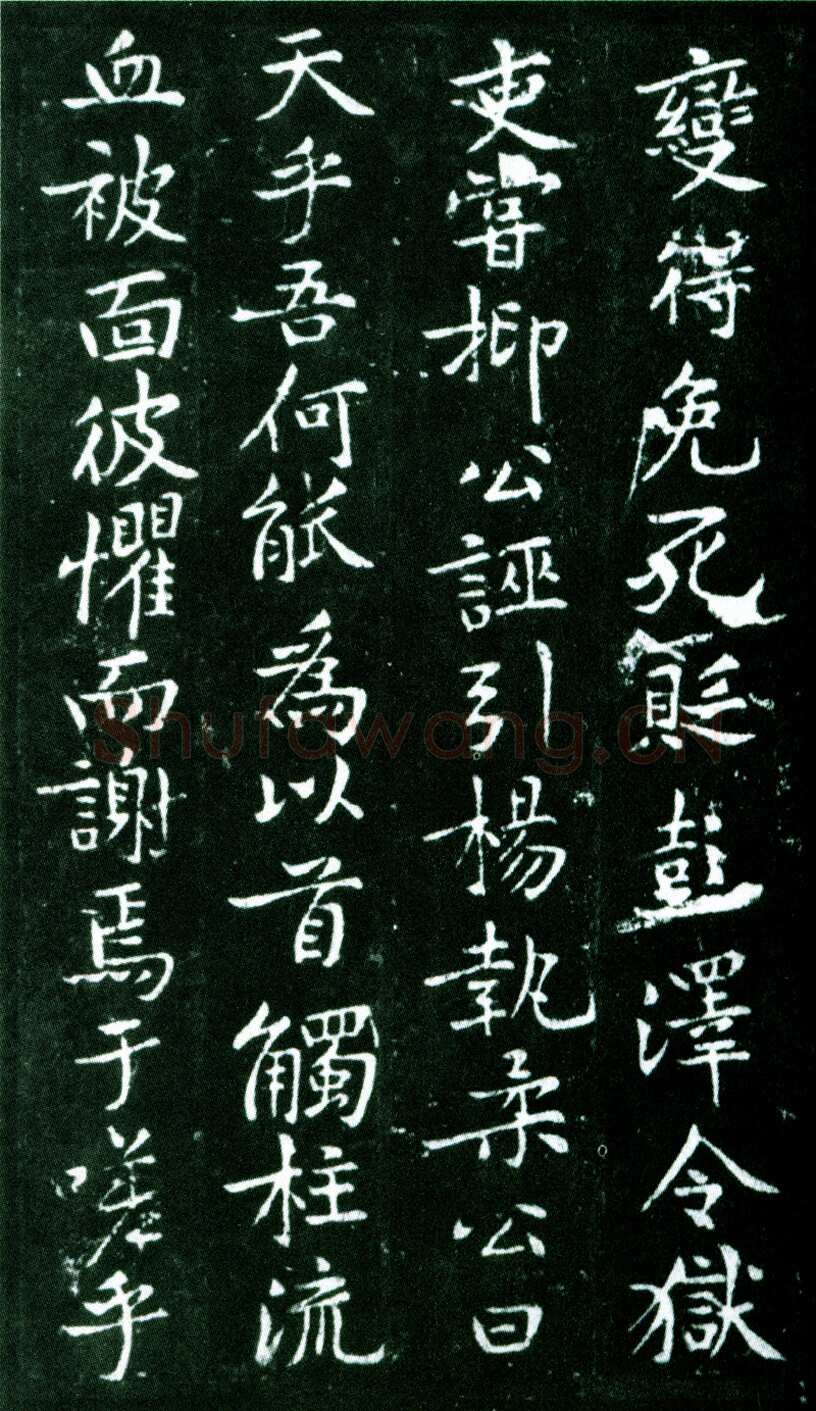 變得免死貶彭澤令獄
吏嘗抑公誣引楊執柔公曰
天乎吾何能為以首觸柱流
血被面彼懼而謝焉于嗟乎
Shufawang.CN